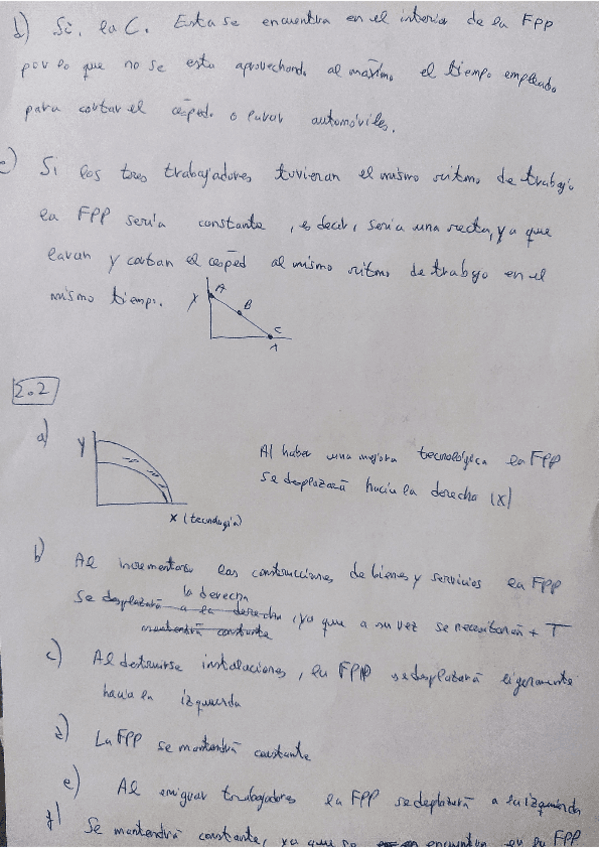 d) Si, la C. Esta se encuentra en el interior de la FPP
por lo que no se esta aprovechando al máximo el tiempo empleado
para cortar el césped o lavar automóviles.
e) Si los tres trabajadores tuvieran el mismo ritmo de trabajo
la FPP seria constante, es decir, seria una recta, ya que
lavan y cortan el césped al mismo ritmo de trabajo en el
mismo tiempo.
Y A
B
C
2.2
a) Y
X (tecnología)
Al haber una mejora tecnológica la FPP
se desplazará hacia la derecha (X)
b) Al incrementar las construcciones de bienes y servicios la FPP
la derecha
se desplazará a la derecha, ya que a su vez se necesitarán + T
mantendrá constante
c) Al destruirse instalaciones, la FPP se desplazará ligeramente
hacia la izquierda
d) La FPP se mantendrá constante
e) Al emigrar trabajadores la FPP se deplazará a la izquierda
f) Se mantendrá constante, ya que se encuentra en la FPP